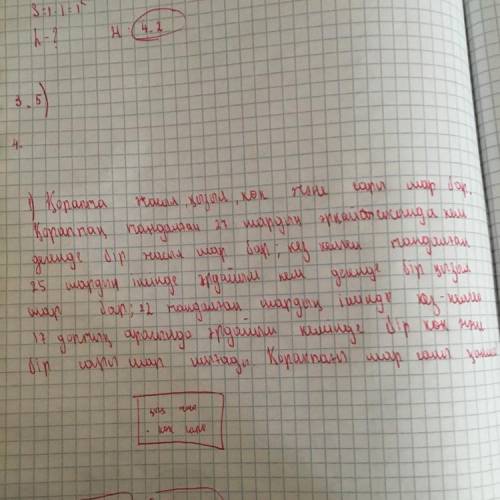 S=1·1=1
h-?
H 4.2
3.5)
4.
1) Қорапта жасыл, қызыл, көк және сары шар бар.
Қораптан таңдалған 27 шардың кем
дегенде бір жасыл шар бар; кез келген таңдалған
25 шардың ішінде әрдайым кем дегенде бір қызыл
шар бар; 22 таңдалған шардың ішінде
17 арасында әрдайым кемінде бір көк
бір сары шар шығады. Қораптағы шар саны қанша
қыз жас
көк сары